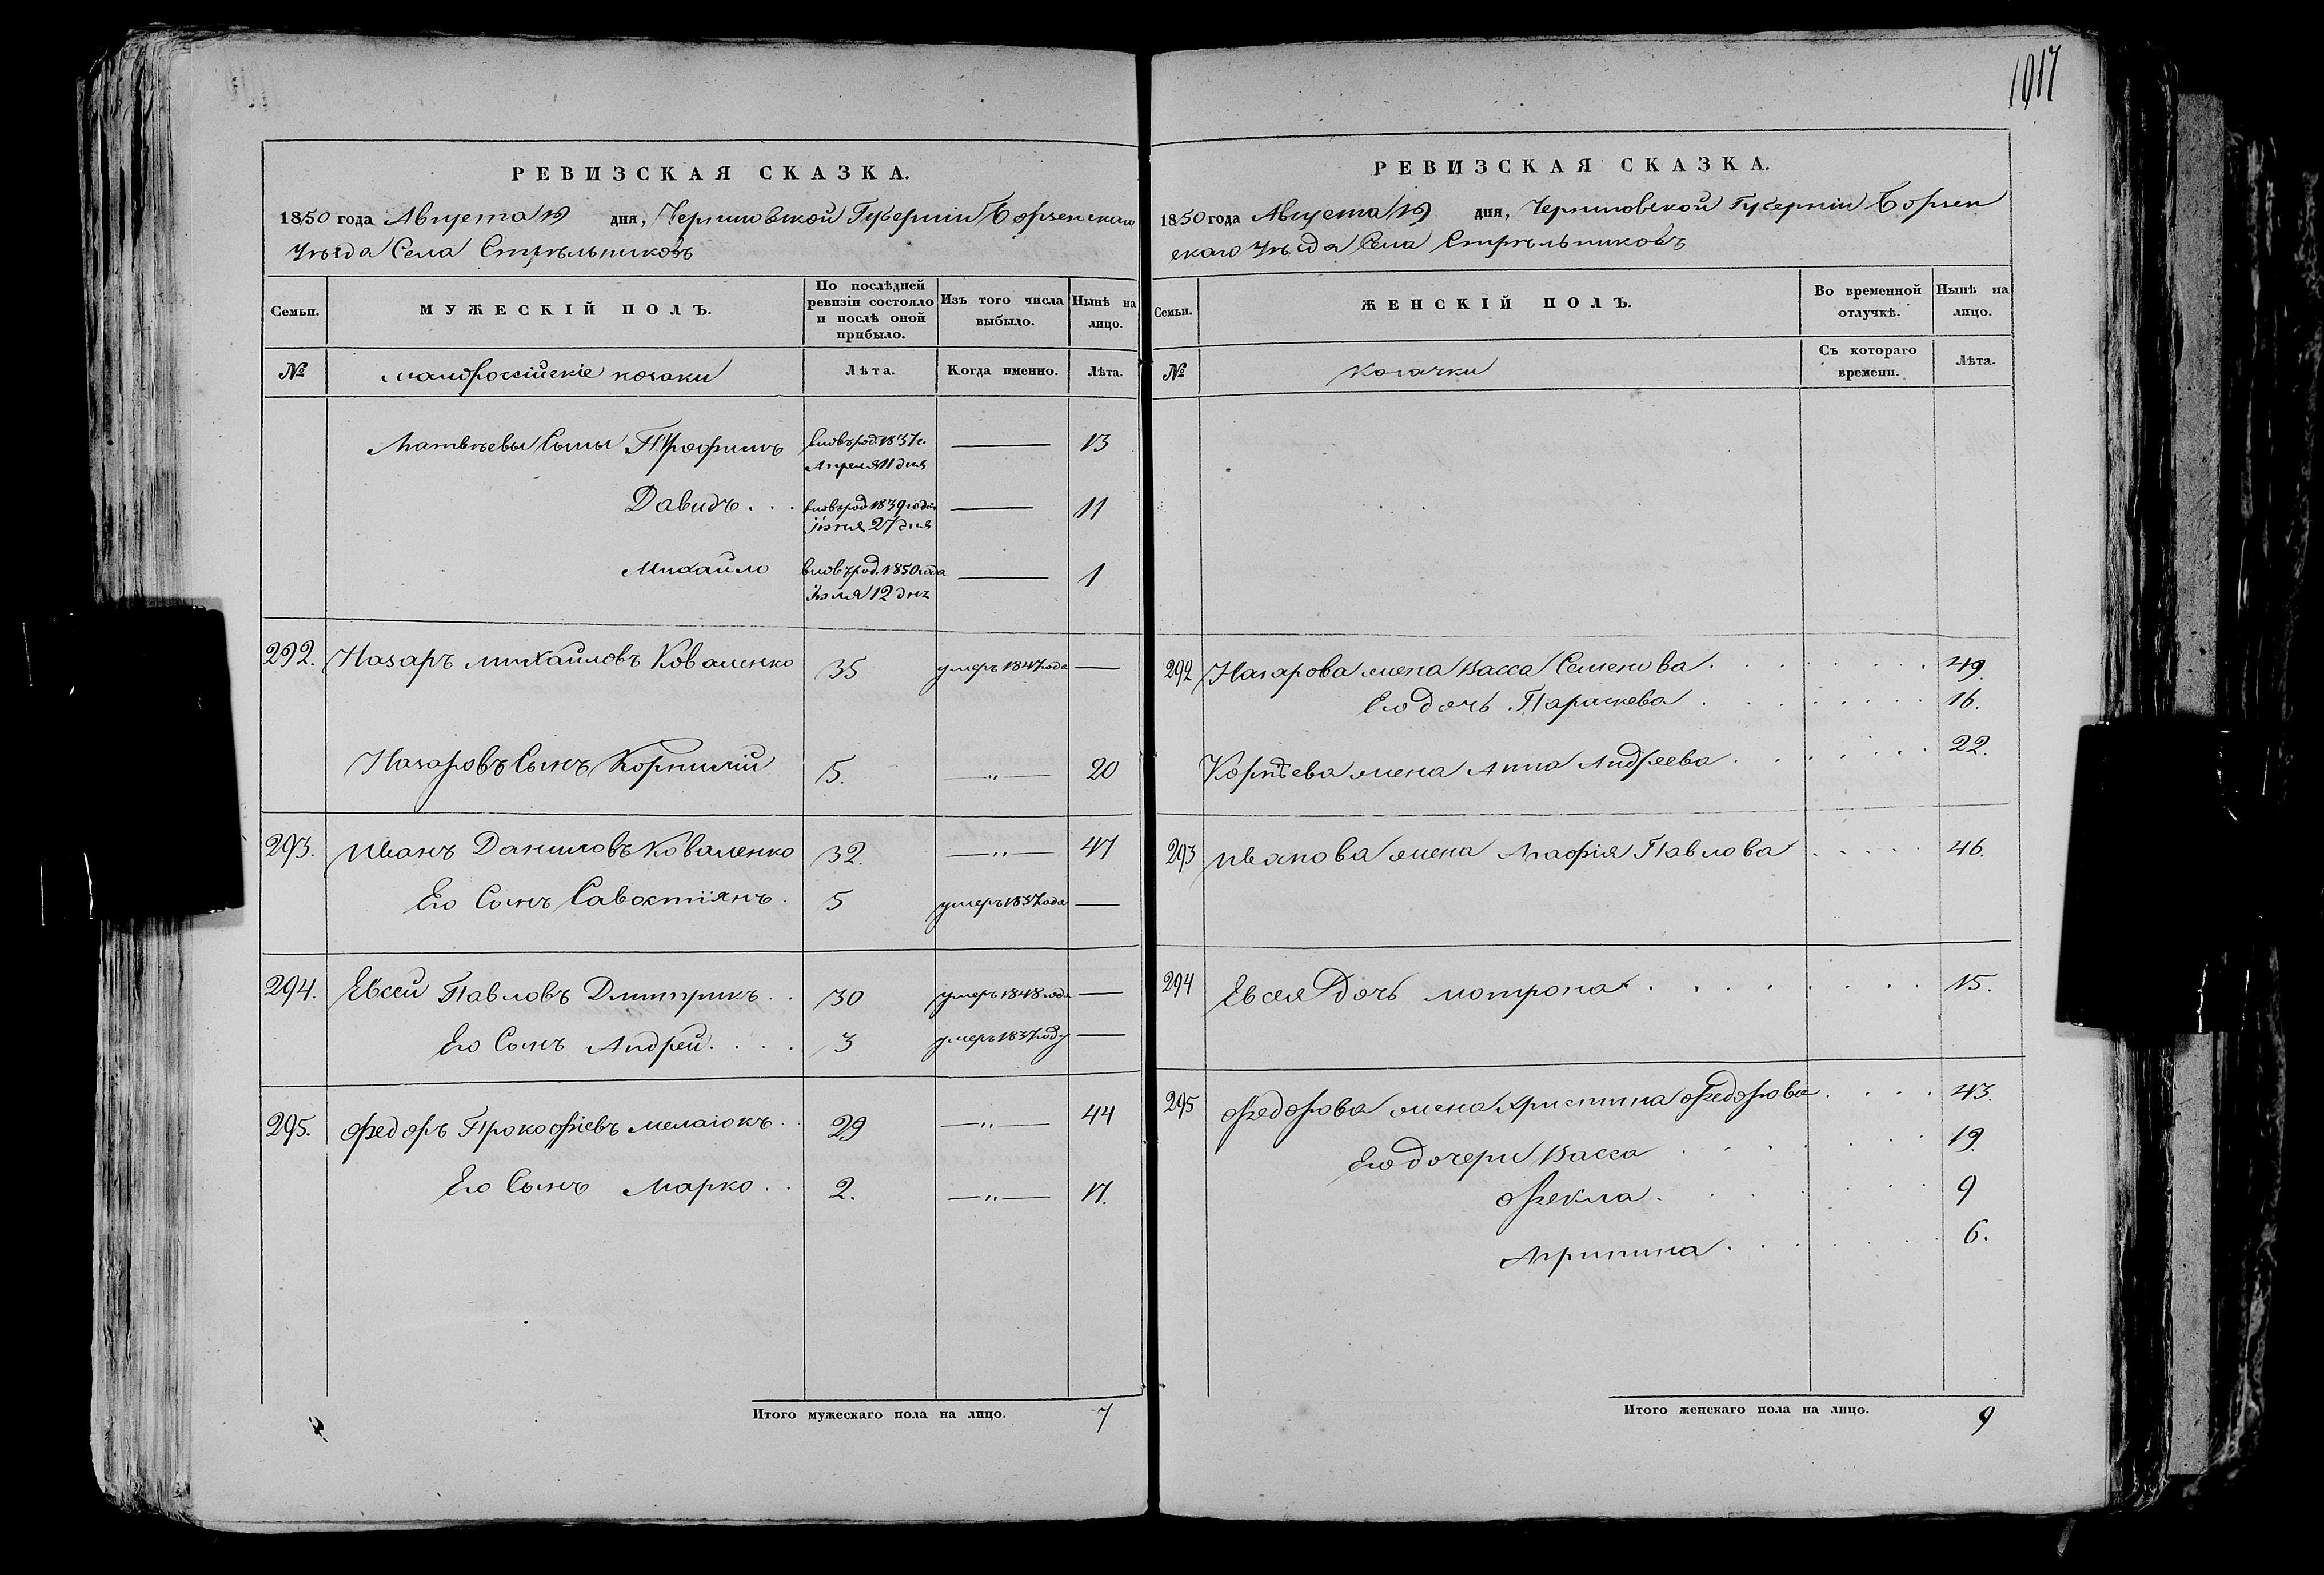 1017
РЕВИЗСКАЯ СКАЗКА.
1850 года Августа 19 дня, Черниговской Губерніи Борзенскаго
Уѣзда Села Стрѣльниковъ
Семьи.
МУЖЕСКІЙ ПОЛЪ.
По послѣдней ревизіи состояло и послѣ оной прибыло.
Изъ того числа выбыло.
Нынѣ на лицо.
№
малороссійскіе козаки
Лѣта.
Когда именно.
Лѣта.
Матвѣевы Сыны Трофимъ вновь род. 1837 г. Апреля 11 дня — 13
Давидъ . . . вновь род 1839 года іюня 27 дня — 11
Михайло вновь род. 1850 года іюля 12 дня — 1
292. Назаръ михайловъ Коваленко 35 умеръ 1847 года —
Назаровъ Сынъ Корнилій 5. —„— 20
293. Иванъ Даниловъ Коваленко 32. —„— 47
Его Сынъ Савостіянъ. 5 умеръ 1837 года —
294. Евсей Павловъ Дмитрикъ . . 30 умеръ 1848 года —
Его Сынъ Андрей. . . . 3 умеръ 1837 году —
295. Федоръ Прокофіевъ . . 29 —„— 44
Его Сынъ Марко . . 2. —„— 17.
Итого мужескаго пола на лицо. 7
РЕВИЗСКАЯ СКАЗКА.
1850 года Августа 19 дня, Черниговской Губерніи Борзен
скаго Уѣзда Села Стрѣльниковъ
Семьи.
ЖЕНСКІЙ ПОЛЪ.
Во временной отлучкѣ.
Нынѣ на лицо.
№
козачки
Съ котораго времени.
Лѣта.
292 Назарова жена Васса Семенова . . . . . . . . 49.
Его дочь Параскева . . . . . . . . 16.
жена Анна Андреева . . . . . . . 22.
293 Иванова жена Агафія Павлова . . . . . 46.
294 Евсея дочь мотрона . . . . . . . . 15.
295 Федорова жена Христина Федорова . . . . 43.
Его дочери Васса . . . . . . . 19.
Фекла . . . . . . . 9
Агрипина . . . . . . . 6.
Итого женскаго пола на лицо. 9